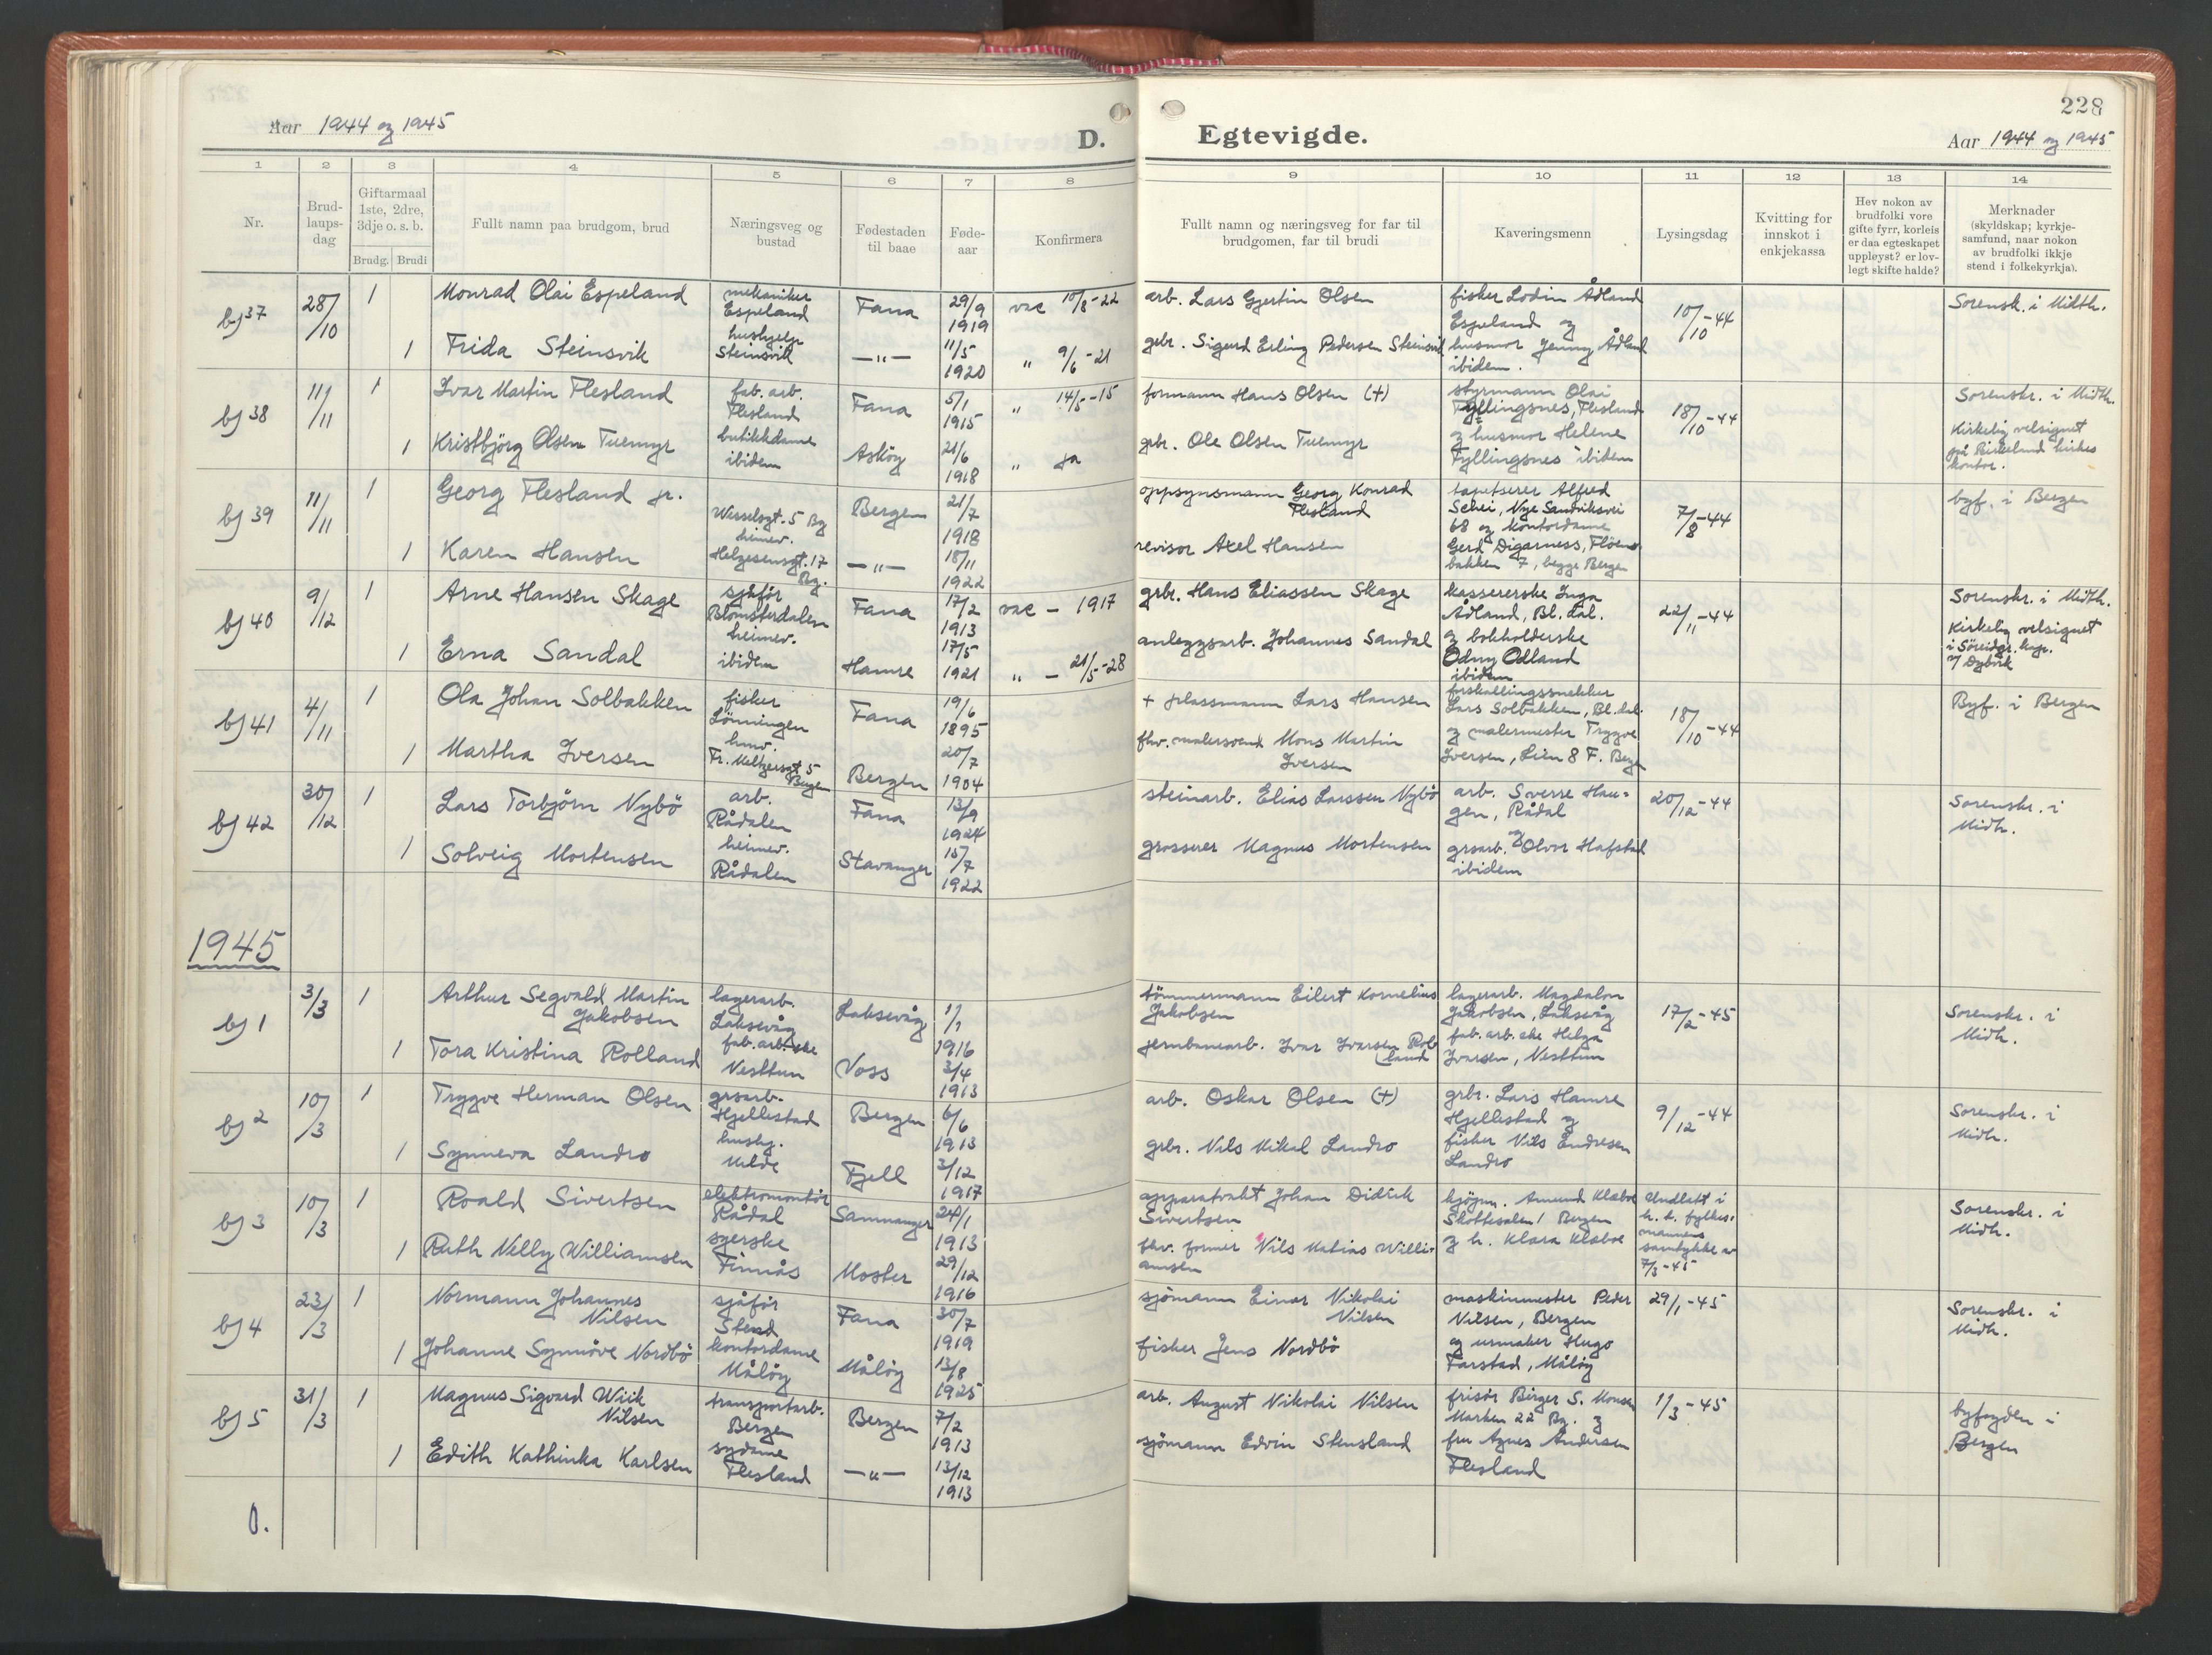 228
Aar 1944 og 1945
D.
Egtevigde.
Aar 1944 og 1945
1 2 3 4 5 6 7 8 9 10 11 12 13 14
Nr.
Brud-
laups-
dag
Giftarmaal
1ste, 2dre,
3dje o. s. b.
Brudg. Brudi
Fullt namn paa brudgom, brud
Næringsveg og
bustad
Fødestaden
til baae
Føde-
aar
Konfirmera
Fullt namn og næringsveg for far til
brudgomen, far til brudi
Kaveringsmenn
Lysingsdag
Kvitting for
innskot i
enkjekassa
Hev nokon av
brudfolki vore
gifte fyrr, korleis
er daa egteskapet
uppløyst? er lov-
legt skifte halde?
Merknader
(skyldskap; kyrkje-
samfund, naar nokon
av brudfolki ikkje
stend i folkekyrkja).
bj 37
28/10
1
Monrad Olai Espeland
mekaniker
Espeland
Fana
29/9
1919
vac 10/8-22
arb. Lars Gjertin Olsen
fisker Lodin Ådland
Espeland og
10/10-44
Sorensk. i Midth.
1
Frida Steinsvik
hushjelp
Steinsvik
—"—
11/5
1920
" 9/6-21
gbr. Sigurd Erling Pedersen Steinsvik
husmor Jenny Ådland
ibidem.
bj 38
11/11
1
Ivar Martin Flesland
fab. arb.
Flesland
Fana
5/1
1915
" 14/5-15
formann Hans Olsen (+)
styrmann Olai
Fyllingsnes, Flesland
18/10-44
Sorenskr. i Midth.
1
Kristbjörg Olsen Tuemyr
butikkdame
ibidem
Asköy
21/6
1918
" ja
gbr. Ole Olsen Tuemyr
og husmor Helene
Fyllingsnes ibidem
Kirkelig velsignet
på Birkeland kirkes
kontor.
bj 39
11/11
1
Georg Flesland jr.
Wesselsgt. 5 Bg
Bergen
21/7
1918
oppsynsmann Georg Konrad
Flesland
tapetserer Alfred
Schei, Nye Sandviksvei
68 og kontordame
7/8-44
byf. i Bergen
1
Karen Hansen
heimev.
Helgesensgt. 17
Bg.
—"—
18/11
1922
revisor Axel Hansen
Gerd Digarness, Fløen
bakken 7, begge Bergen
bj 40
9/12
1
Arne Hansen Skage
sjåför
Blomsterdalen
Fana
17/2
1913
vac - 1917
gbr. Hans Eliassen Skage
kassererske Inga
Ådland, Bl. dal.
22/11-44
Sorenskr. i Midth.
1
Erna Sandal
heimev.
ibidem
Hamre
17/5
1921
" - 21/5-28
anleggsarb. Johannes Sandal
og bokholderske
Odny Odland
ibidem
Kirkelig velsignet
i Söreidgr. kap.
v/ Dybvik
bj 41
4/11
1
Ola Johan Solbakken
fisker
Lönningen
Fana
19/6
1895
+ plassmann Lars Hansen
forskallingssnekker
Lars Solbakken, Bl.dal.
18/10-44
Byf. i Bergen
1
Martha Iversen
hmv.
Fr. Meltzersgt 5
Bergen
Bergen
20/7
1904
fhv. malersvend Mons Martin
Iversen
og malermester Trygve
Iversen, Lien 8 F. Bergen
bj 42
30/12
1
Lars Torbjörn Nybö
arb.
Rådalen
Fana
13/9
1924
steinarb. Elias Larssen Nybö
arb. Sverre Hau-
gen, Rådal
20/12-44
Sorenskr. i
Midh.
1
Solveig Mortensen
heimev.
Rådalen
Stavanger
15/7
1922
grosserer Magnus Mortensen
og
grsarb. Olvor Hafstad
ibidem
1945
bj 1
3/3
1
Arthur Segvald Martin
Jakobsen
lagerarb.
Laksevåg
Laksevåg
1/1
1916
tömmermann Eilert Kornelius
Jakobsen
lagerarb. Magdalon
Jakobsen, Laksevåg
17/2-45
Sorenskr. i
Midh.
1
Tora Kristina Rolland
fab.arb.ske
Nesttun
Voss
3/4
1913
jernbanearb. Ivar Ivarsen Rol-
land
fab.arb.ske Helga
Ivarsen, Nesttun
bj 2
10/3
1
Trygve Herman Olsen
grsarb.
Hjellestad
Bergen
6/6
1913
arb. Oskar Olsen (+)
grbr. Lars Hamre
Hjellestad og
9/12-44
Sorenskr. i
Midh.
1
Synneva Landro
hushj.
Milde
Fjell
3/12
1917
gbr. Nils Mikal Landro
fisker Nils Endresen
Landro
bj 3
10/3
1
Roald Sivertsen
elektromontör
Rådal
Samnanger
24/1
1913
apparatvakt Johan Didrik
Sivertsen
kjøpm. Amund Klæboe
Skottesalen 1 Bergen
Undlatt i
h. t. fylkes-
mannens
samtykke av
7/3-45
Sorenskr. i
Midh.
1
Ruth Nelly Williamsen
syerske
Finnås
Moster
29/12
1916
fhv. former Nils Matias Willi-
amsen
og h. Klara Klæboe
bj 4
23/3
1
Normann Johannes
Nilsen
sjåför
Stend
Fana
30/7
1919
sjömann Einar Nikolai
Nilsen
maskinmester Peder
Nilsen, Bergen
29/1-45
Sorenskr. i
Midh.
1
Johanne Synnöve Nordbö
kontordame
Målöy
Målöy
13/8
1925
fisker Jens Nordbö
og urmaker Hugo
Farstad, Målöy
bj 5
31/3
1
Magnus Sigvard Wiik
Nilsen
transportarb.
Bergen
Bergen
7/2
1913
arb. August Nikolai Nilsen
frisör Birger S. Monsen
Marken 22 Bg. og
1/3-45
byfogden i
Bergen
1
Edith Kathinka Karlsen
sydame
Flesland
—"—
13/12
1913
sjömann Edvin Stensland
fru Agnes Andersen
Flesland
0.